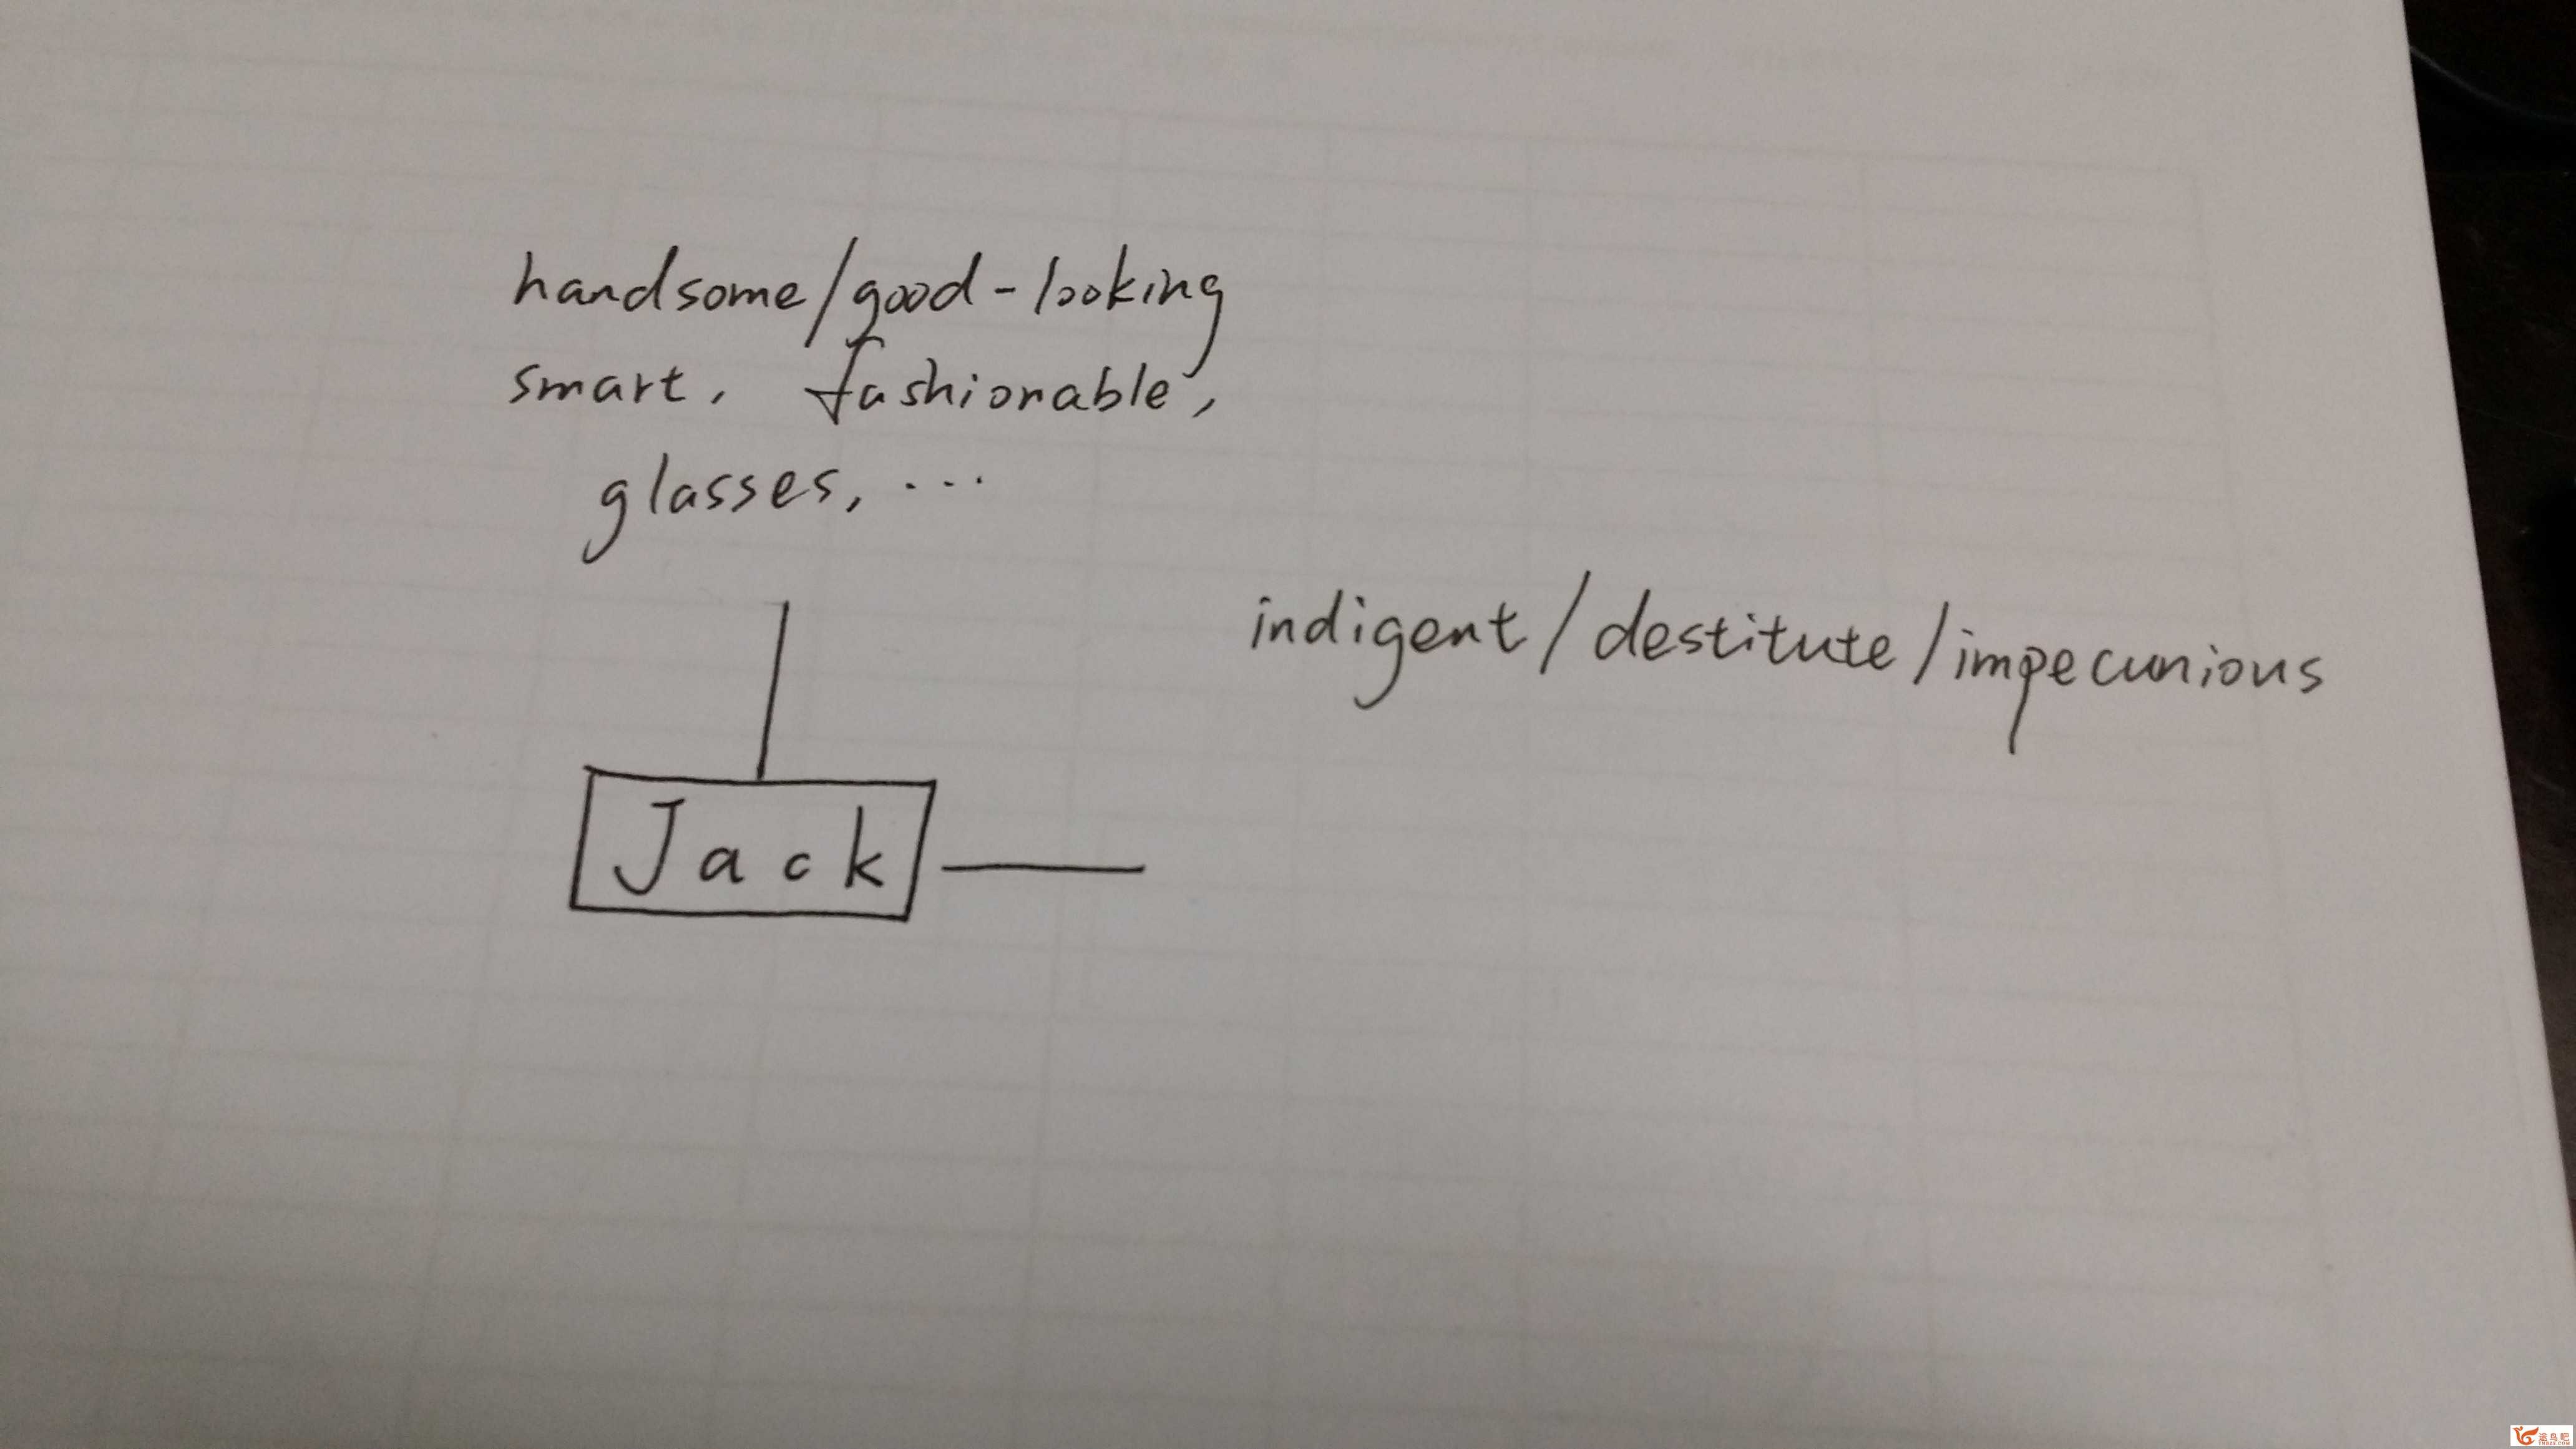 handsome/good-looking
smart, fashionable,
glasses, ...
indigent/destitute/impecunious
Jack
途鸟吧